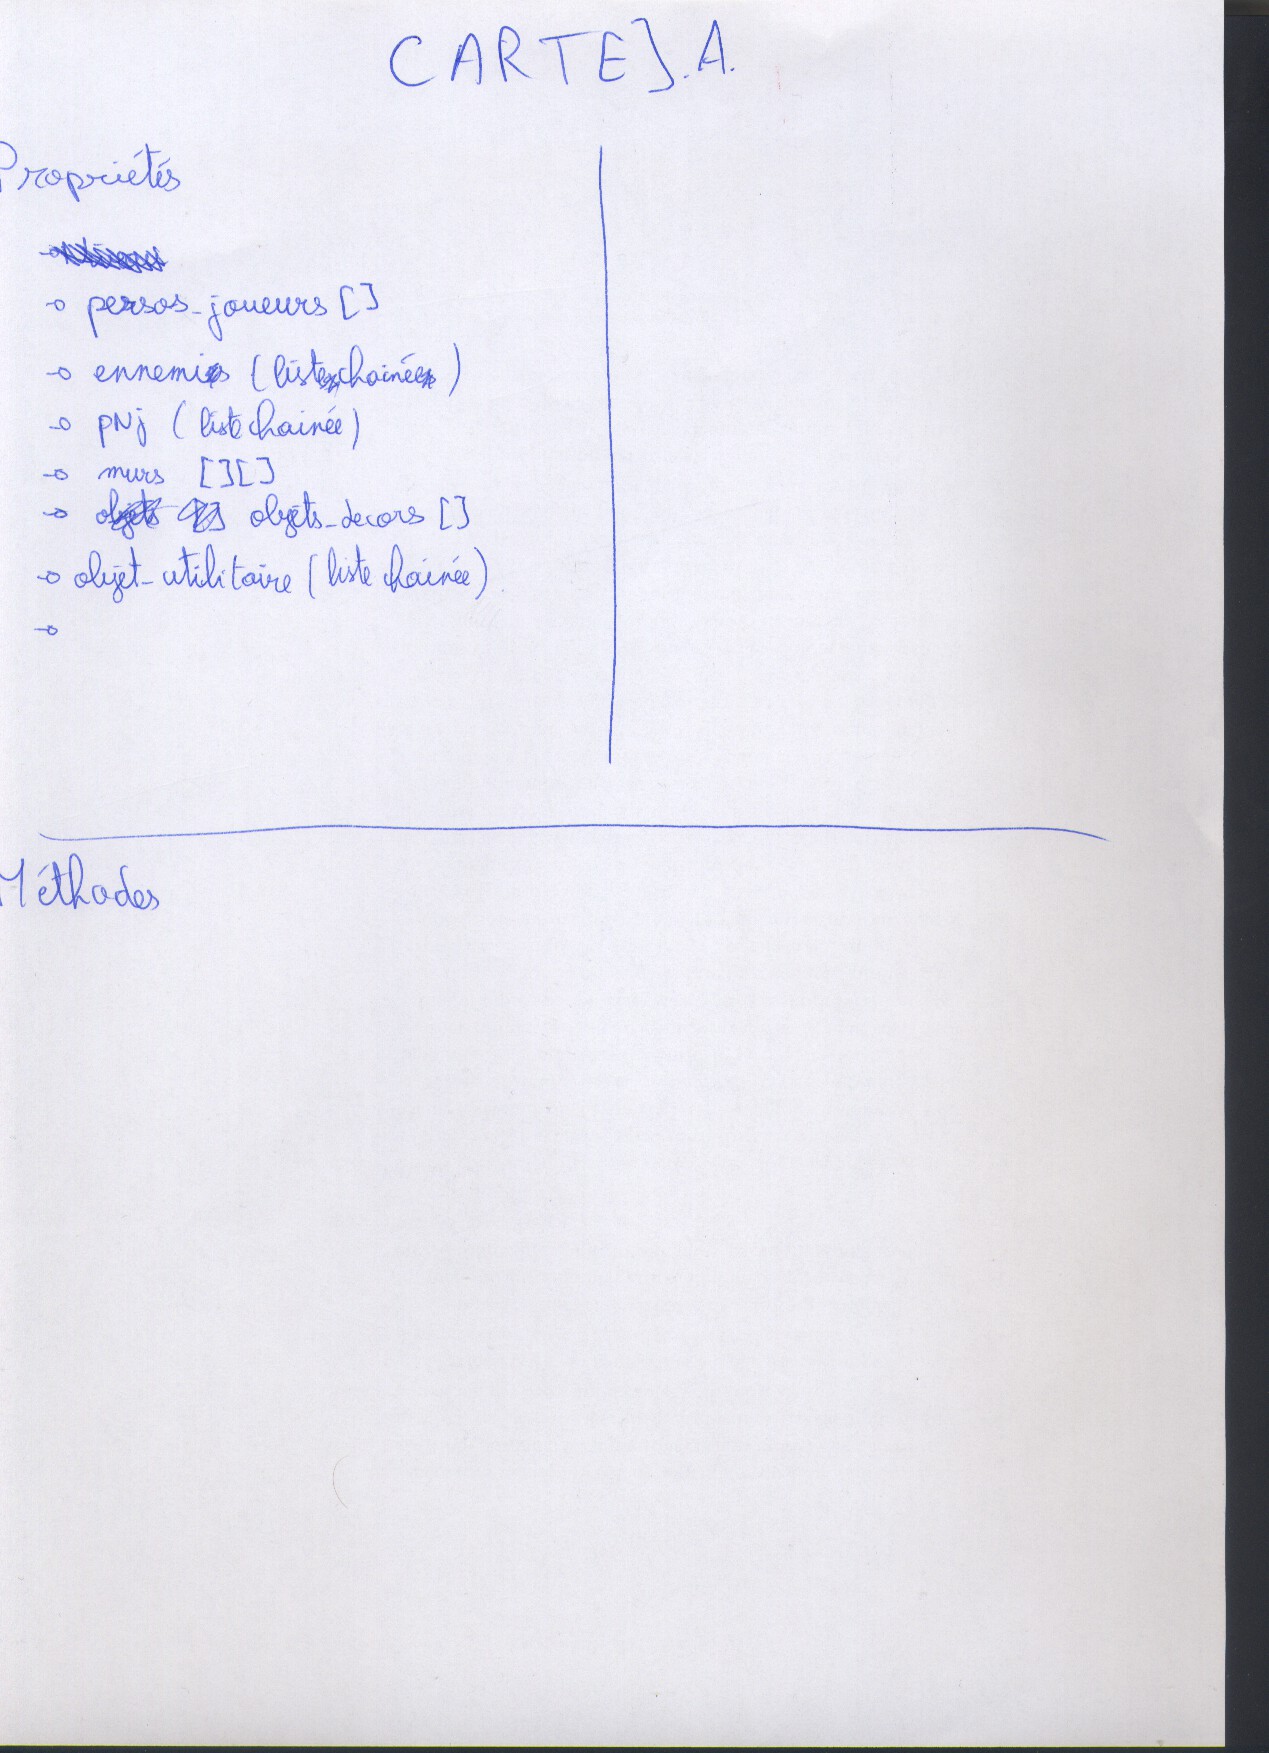 CARTE J.A.
Propriétés
-o persos_joueurs []
-o ennemis (liste chainée)
-o pNj (liste chainée)
-o murs [][]
-o objets_decors []
-o objet_utilitaire (liste chainée)
-o
Méthodes